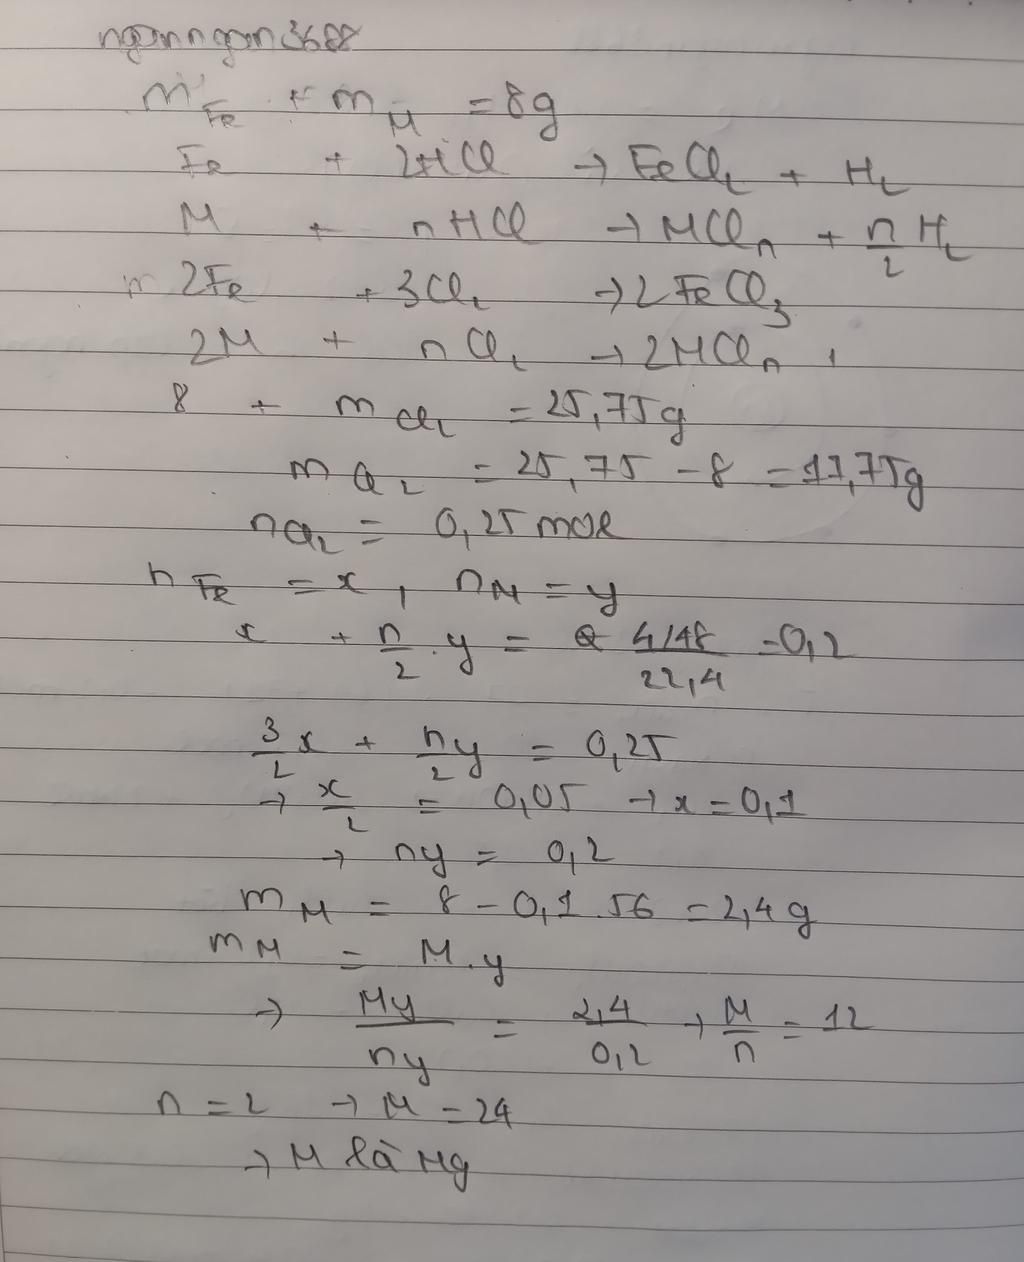 ngannngan3688
m Fe + m M = 8g
Fe + 2HCl → FeCl2 + H2
M + nHCl → MCln + n/2 H2
2Fe + 3Cl2 → 2FeCl3
2M + nCl2 → 2MCln
8 + mCl2 = 25,75g
mCl2 = 25,75 - 8 = 17,75g
nCl2 = 0,25 mol
nFe = x, nM = y
x + n/2 . y = 4,48/22,4 = 0,2
3/2 x + ny/2 = 0,25
→ x/2 = 0,05 → x = 0,1
→ ny = 0,2
mM = 8 - 0,1 . 56 = 2,4g
mM = M.y
→ My/ny = 2,4/0,2 → M/n = 12
n = 2 → M = 24
→ M là Mg